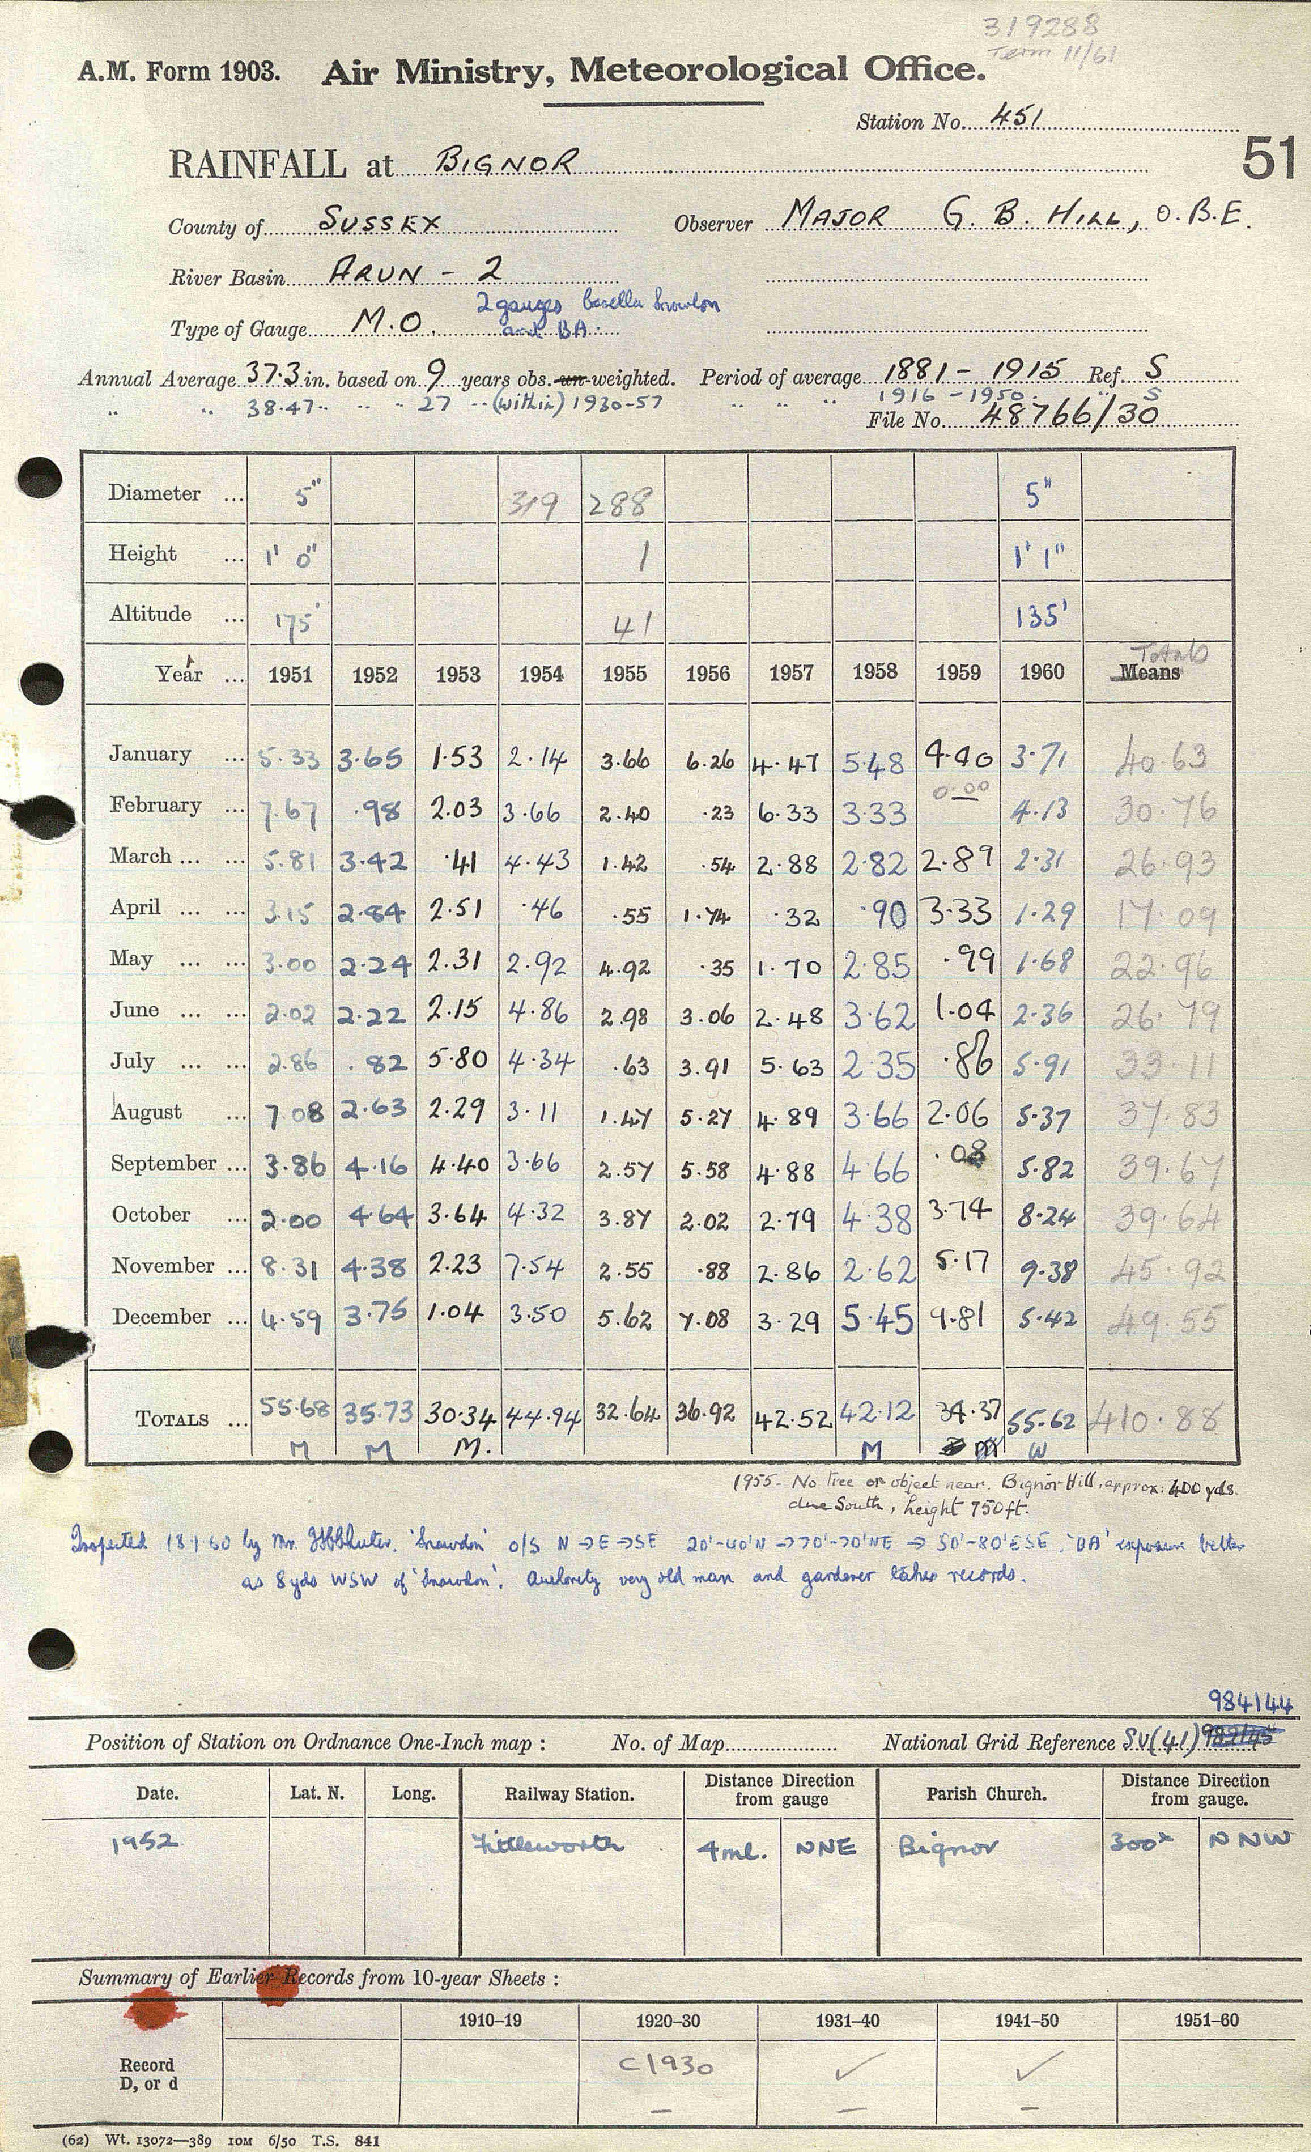 319288
Term 11/61
A.M. Form 1903. Air Ministry, Meteorological Office.
Station No. 451
51
RAINFALL at BIGNOR
County of SUSSEX Observer MAJOR G. B. HILL, O.B.E.
River Basin ARUN - 2
Type of Gauge M.O. 2 gauges Casella Snowdon
and BA.
Annual Average 37.3 in. based on 9 years obs. un-weighted. Period of average 1881 - 1915 Ref. S
" " 38.47 " " " 27 " (within) 1930-57 " " " 1916 - 1950 " S
File No. 48766/30
Diameter ... 5" 319 288 5"
Height ... 1' 0" 1 1' 1"
Altitude ... 175' 41 135'
Totals
Year ... 1951 1952 1953 1954 1955 1956 1957 1958 1959 1960 Means
January ... 5.33 3.65 1.53 2.14 3.66 6.26 4.47 5.48 4.40 3.71 40.63
February ... 7.67 .98 2.03 3.66 2.40 .23 6.33 3.33 0.00 4.13 30.76
March ... ... 5.81 3.42 .41 4.43 1.42 .54 2.88 2.82 2.89 2.31 26.93
April ... ... 3.15 2.84 2.51 .46 .55 1.74 .32 .90 3.33 1.29 17.09
May ... ... 3.00 2.24 2.31 2.92 4.92 .35 1.70 2.85 .99 1.68 22.96
June ... ... 2.02 2.22 2.15 4.86 2.98 3.06 2.48 3.62 1.04 2.36 26.79
July ... ... 2.86 .82 5.80 4.34 .63 3.91 5.63 2.35 .86 5.91 33.11
August ... 7.08 2.63 2.29 3.11 1.47 5.27 4.89 3.66 2.06 5.37 37.83
September ... 3.86 4.16 4.40 3.66 2.57 5.58 4.88 4.66 .08 5.82 39.67
October ... 2.00 4.64 3.64 4.32 3.87 2.02 2.79 4.38 3.74 8.24 39.64
November ... 8.31 4.38 2.23 7.54 2.55 .88 2.86 2.62 5.17 9.38 45.92
December ... 4.59 3.75 1.04 3.50 5.62 7.08 3.29 5.45 9.81 5.42 49.55
TOTALS ... 55.68 35.73 30.34 44.94 32.64 36.92 42.52 42.12 34.37 55.62 410.88
M M M. M M W
1955 - No tree or object near. Bignor Hill, approx. 400 yds.
due South, height 750 ft.
Inspected 18.1.60 by Mr. 'Snowdon' o/s N → E → SE 20'-40'N → 70'-70'NE → 50'-80'ESE. 'BA' exposure better
as 8 yds WSW of 'Snowdon'. Authority very old man and gardener takes records.
984144
Position of Station on Ordnance One-Inch map : No. of Map National Grid Reference SU(41) 982145
Date. Lat. N. Long. Railway Station. Distance Direction from gauge Parish Church. Distance Direction from gauge.
1952 Fittleworth 4ml. NNE Bignor 300x NNW
Summary of Earlier Records from 10-year Sheets :
1910–19 1920–30 1931–40 1941–50 1951–60
Record
D, or d
C1930 ✓ ✓
— — —
(62) Wt. 13072—389 10M 6/50 T.S. 841